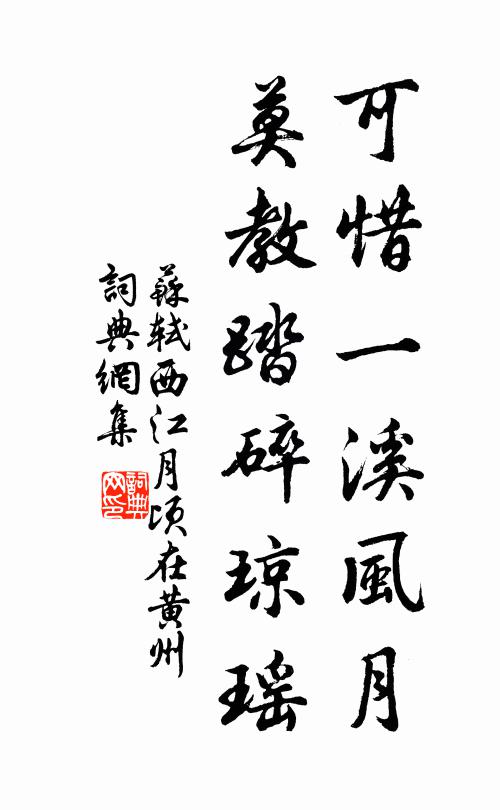 可惜一溪風月
莫教踏碎琼瑶
蘇軾西江月頃在黃州
詞典網集
詞典
网印